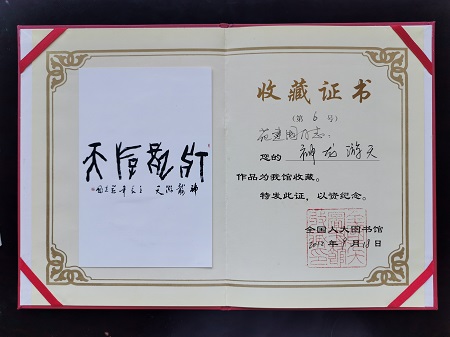 神龍游天
神龍游天
收藏证书
(第 6 号)
范建国同志:
您的 神龙游天
作品为我馆收藏。
特发此证，以资纪念。
全国人大图书馆
2012 年 8 月 18 日